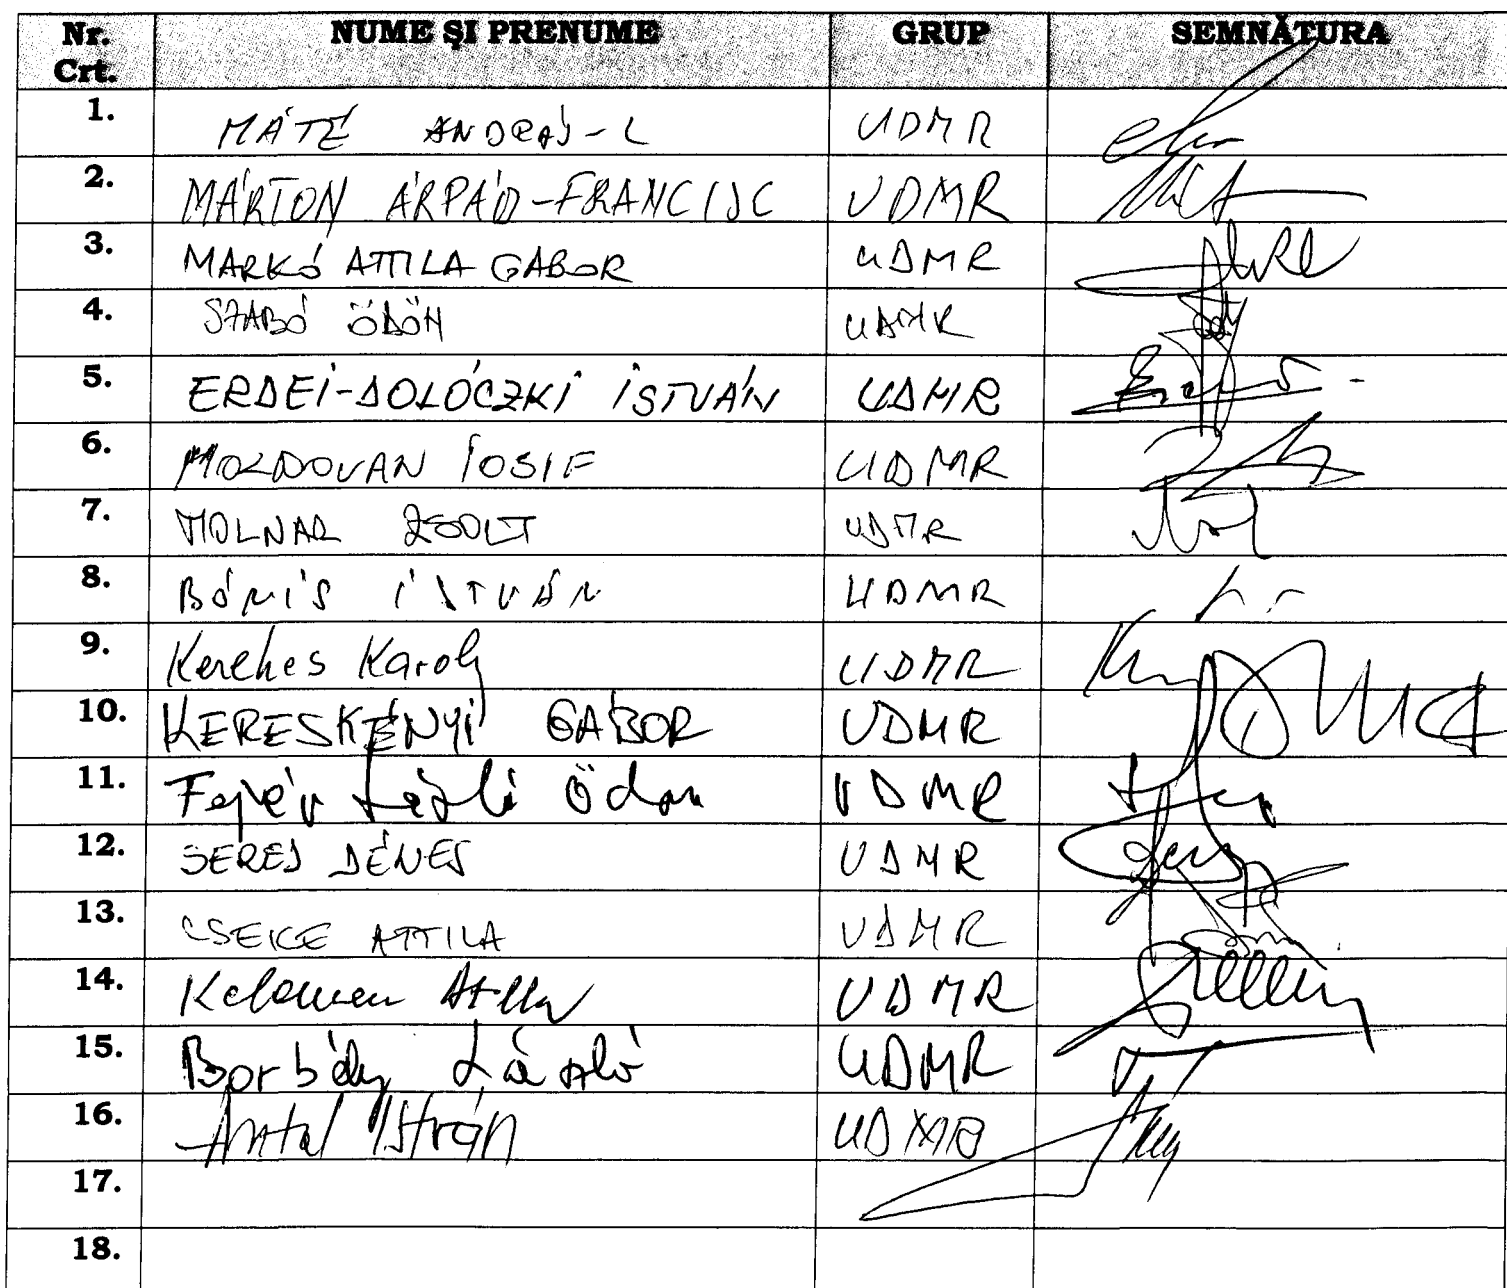 Nr. Crt. NUME ȘI PRENUME GRUP SEMNĂTURA
1. MÁTÉ ANDRÁS-L UDMR
2. MÁRTON ÁRPÁD-FRANCISC UDMR
3. MARKÓ ATTILA GABOR UDMR
4. SZABÓ ÖDÖN UDMR
5. ERDEI-DOLÓCZKI ISTVÁN UDMR
6. MOLDOVAN IOSIF UDMR
7. MOLNAR ZSOLT UDMR
8. BÓNIS ISTVÁN UDMR
9. Kerekes Karoly UDMR
10. KERESKÉNYI GÁBOR UDMR
11. Fejér László Ödön UDMR
12. SERES DÉNES UDMR
13. CSEKE ATTILA UDMR
14. Kelemen Atilla UDMR
15. Borbély László UDMR
16. Antal István UDMR
17.
18.